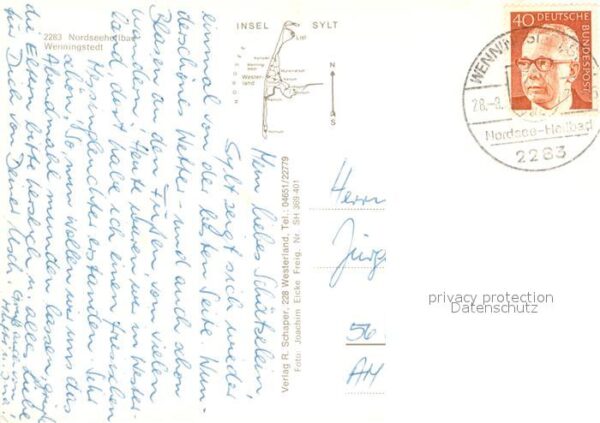 2283 Nordseeheilbad
Wenningstedt
INSEL SYLT
List
Wester-
land
N
S
40
DEUTSCHE
BUNDESPOST
WENNINGSTEDT
28.-8.
Nordsee-Heilbad
2283
Mein liebes Schätzelein,
Sylt zeigt sich wieder
einmal von der besten Seite. Wun-
derschönes Wetter - und auch schon
Blasen an den Füßen, vom vielen
wandern. Heute waren wir in Wester-
land, dort habe ich einen frischen
erstanden. Sehr
schön. So nun wollen wir uns das
Abendmahl munden lassen, grüß
die Eltern bitte herzlich, alles Liebe
für Dich von Deiner
Verlag R. Schaper, 228 Westerland, Tel.: 04651/22779
Foto: Joachim Eicke Freig. Nr. SH 369-401
Herrn
Jürg
56
AM
privacy protection
Datenschutz